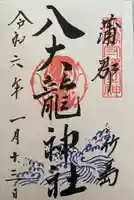 蒲郡
竹島
八大龍神社
令和六年
一月十三日